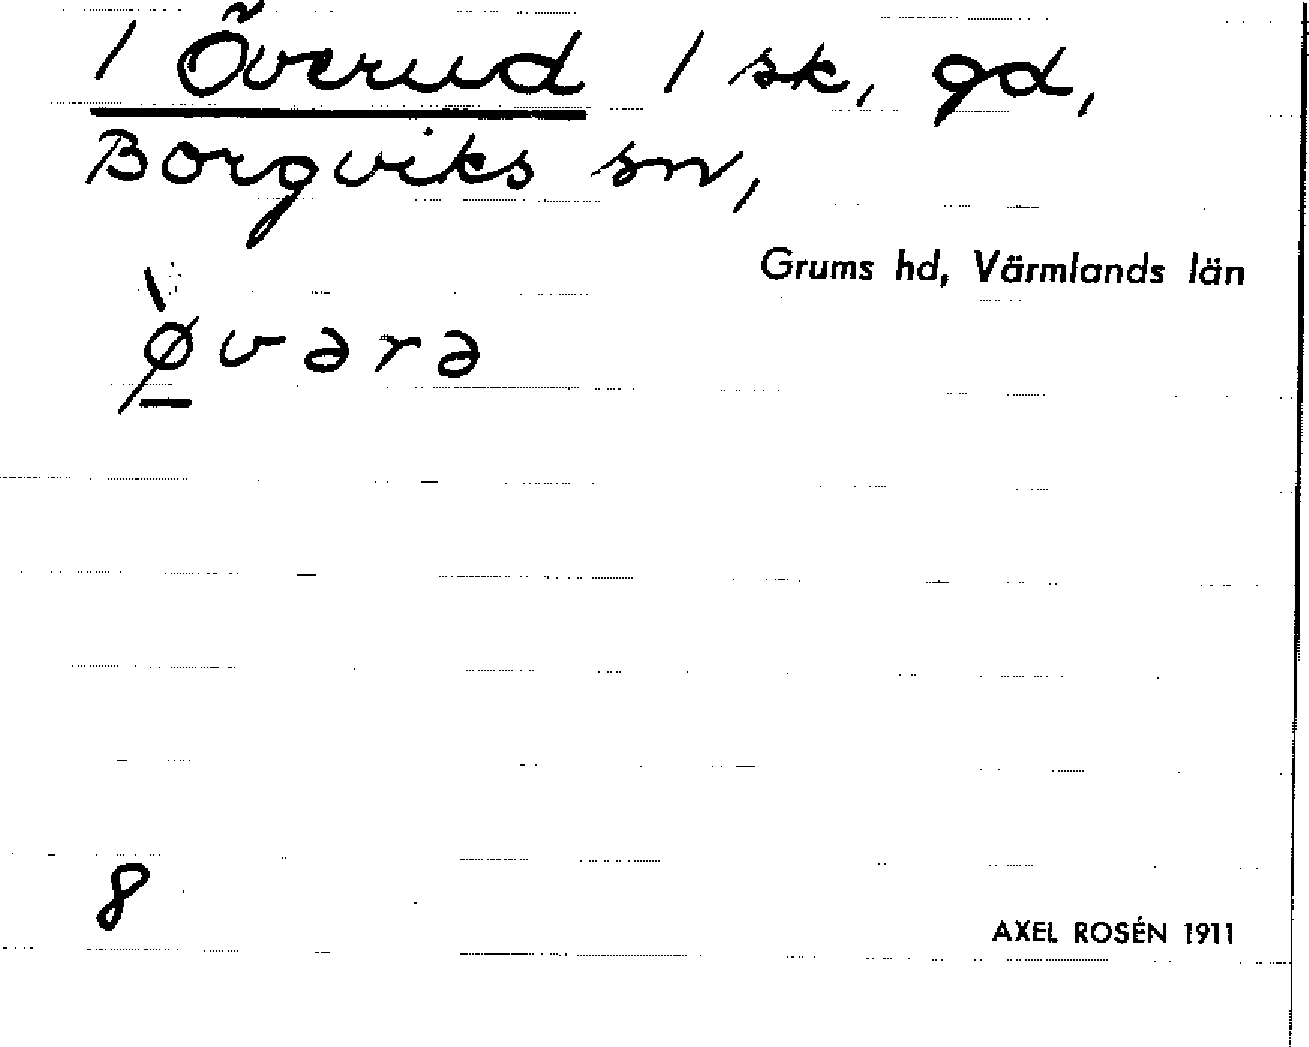 / Överud / sk, gd,
Borgviks sn,
Grums hd, Värmlands län
ø̱̀vərə
8
AXEL ROSÉN 1911